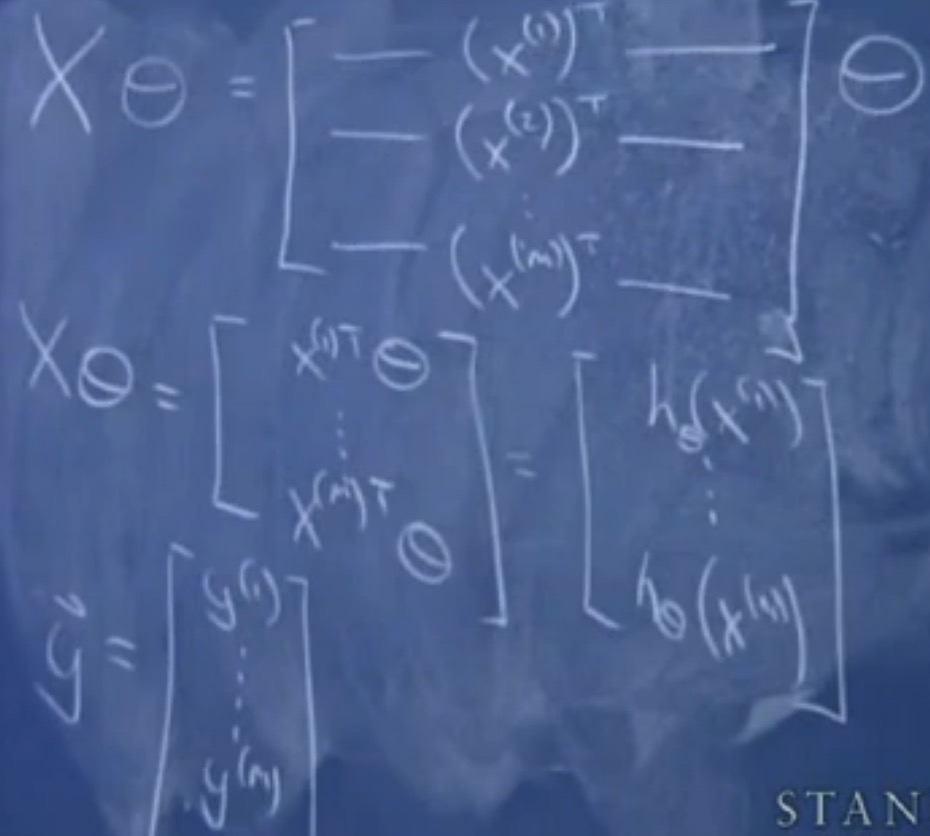 X θ = [ — (x^(1))^T — ] θ
— (x^(2))^T —
⋮
— (x^(m))^T —
Xθ = [ x^(1)T θ ⋮ x^(m)T θ ] = [ h_θ(x^(1)) ⋮ h_θ(x^(m)) ]
y⃗ = [ y^(1) ⋮ y^(m) ]
STAN